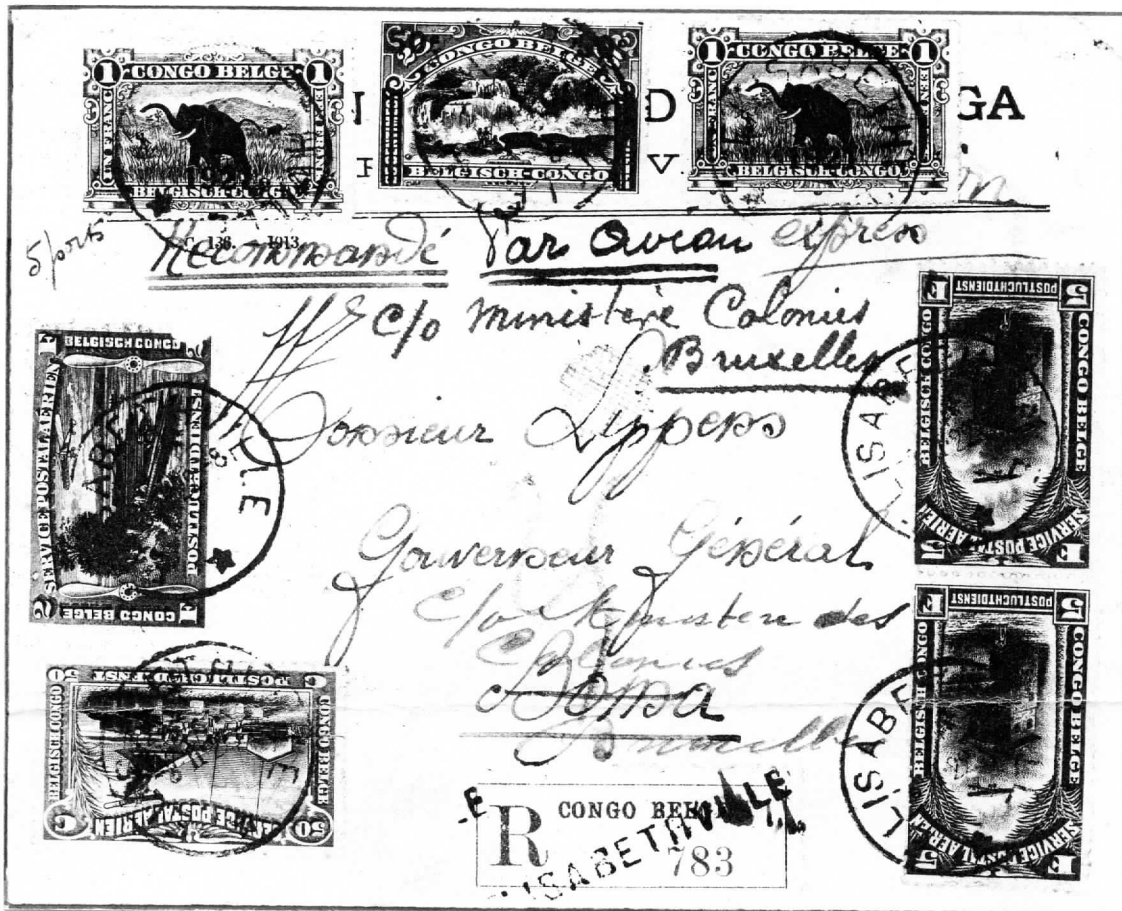 1 CONGO BELGE 1
UN FRANC
EEN FRANK
BELGISCH-CONGO
50
CONGO BELGE
BELGISCH-CONGO
1 CONGO BELGE 1
UN FRANC
EEN FRANK
1921
BELGISCH-CONGO
D
GA
V
136. 1913
5 ports
Recommandé Par avion express
c/o Ministère Colonies
Bruxelles
Monsieur Lippens
Gouverneur Général
c/o Ministère des
Colonies
Boma
Bruxelles
BELGISCH CONGO
SERVICE POSTAL AERIEN
POSTLUCHTDIENST
CONGO BELGE
ABETHVILLE
50
POSTLUCHTDIENST
BELGISCH CONGO
CONGO BELGE
SERVICE POSTAL AERIEN
50
5
POSTLUCHTDIENST
BELGISCH CONGO
CONGO BELGE
SERVICE POSTAL AERIEN
5
LISABE
5
POSTLUCHTDIENST
BELGISCH CONGO
CONGO BELGE
SERVICE POSTAL AERIEN
5
LISABE
R CONGO BELGE
783
ISABETHVILLE